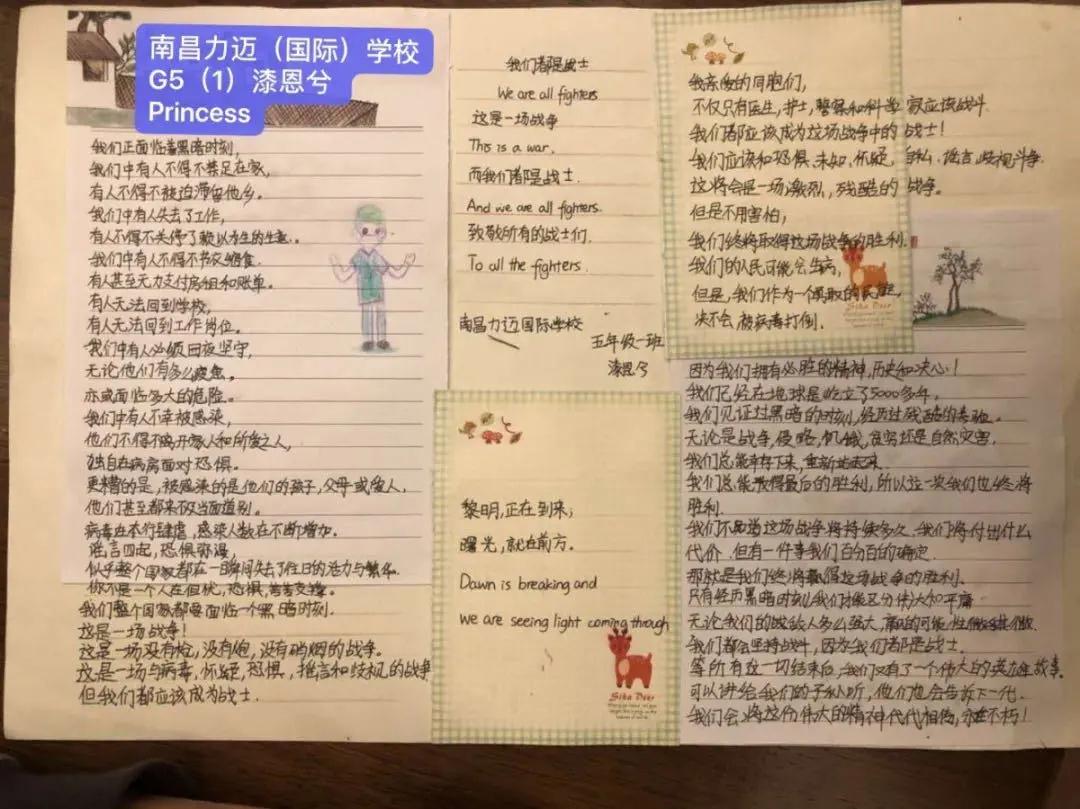 南昌力迈（国际）学校
G5（1）漆恩兮
Princess
我们正面临着黑暗时刻,
我们中有人不得不禁足在家,
有人不得不被迫滞留他乡。
我们中有人失去了工作,
有人不得不关停了赖以为生的生意。
我们中有人不得不节衣缩食.
有人甚至无力支付房租和账单。
有人无法回到学校,
有人无法回到工作岗位。
我们中有人必须日夜坚守,
无论他们有多么疲惫。
亦或面临多大的危险。
我们中有人不幸被感染,
他们不得不离开家人和所爱之人,
独自在病房面对恐惧。
更糟的是,被感染的是他们的孩子,父母或爱人,
他们甚至都来不及当面道别。
病毒在本行肆虐,感染人数在不断增加.
谣言四起,恐惧弥漫,
似乎整个国家都在一瞬间失去了往日的活力与繁华.
你不是一个人在担忧,恐惧,苦苦支撑。
我们整个国家都要面临一个黑暗时刻.
这是一场战争!
这是一场没有枪,没有炮,没有硝烟的战争。
这是一场与病毒,怀疑,恐惧,谣言和歧视的战争
但我们都应该成为战士.
我们都是战士
We are all fighters
这是一场战争
This is a war.
而我们都是战士.
And we are all fighters.
致敬所有的战士们.
To all the fighters.
南昌力迈国际学校
五年级一班
漆恩兮
黎明,正在到来;
曙光,就在前方。
Dawn is breaking and
we are seeing light coming through
Sika Deer
我亲爱的同胞们,
不仅只有医生,护士,警察和科学家应该战斗.
我们都应该成为这场战争中的战士!
我们应该和恐惧.未知.怀疑,自私.谣言,歧视斗争.
这将会是一场激烈,残酷的战争。
但是不用害怕,
我们终将取得这场战争的胜利.
我们的人民可能会生病,
但是,我们作为一个勇敢的民族,
决不会被病毒打倒.
Sika Deer
因为我们拥有必胜的精神,历史和决心!
我们已经在地球是屹立了5000多年,
我们见证过黑暗的时刻,经历过残酷的考验。
无论是战争,侵略,饥饿,贫穷还是自然灾害.
我们总能幸存下来,重新站起来.
我们总能取得最后的胜利,所以这一次我们也终将
胜利.
我们不知道这场战争将持续多久.我们将付出什么
代价.但有一件事我们百分百的确定.
那就是我们终将赢得这场战争的胜利.
只有经历黑暗时刻,我们才能区分伟大和平庸
无论我们的敌人多么强大,赢的可能性微乎其微.
我们都会坚持战斗,因为我们都是战士.
等所有这一切结束后,我们又有了一个伟大的英雄故事.
可以讲给我们的子孙听,他们也会告诉下一代.
我们会将这份伟大的精神代代相传,永垂不朽!